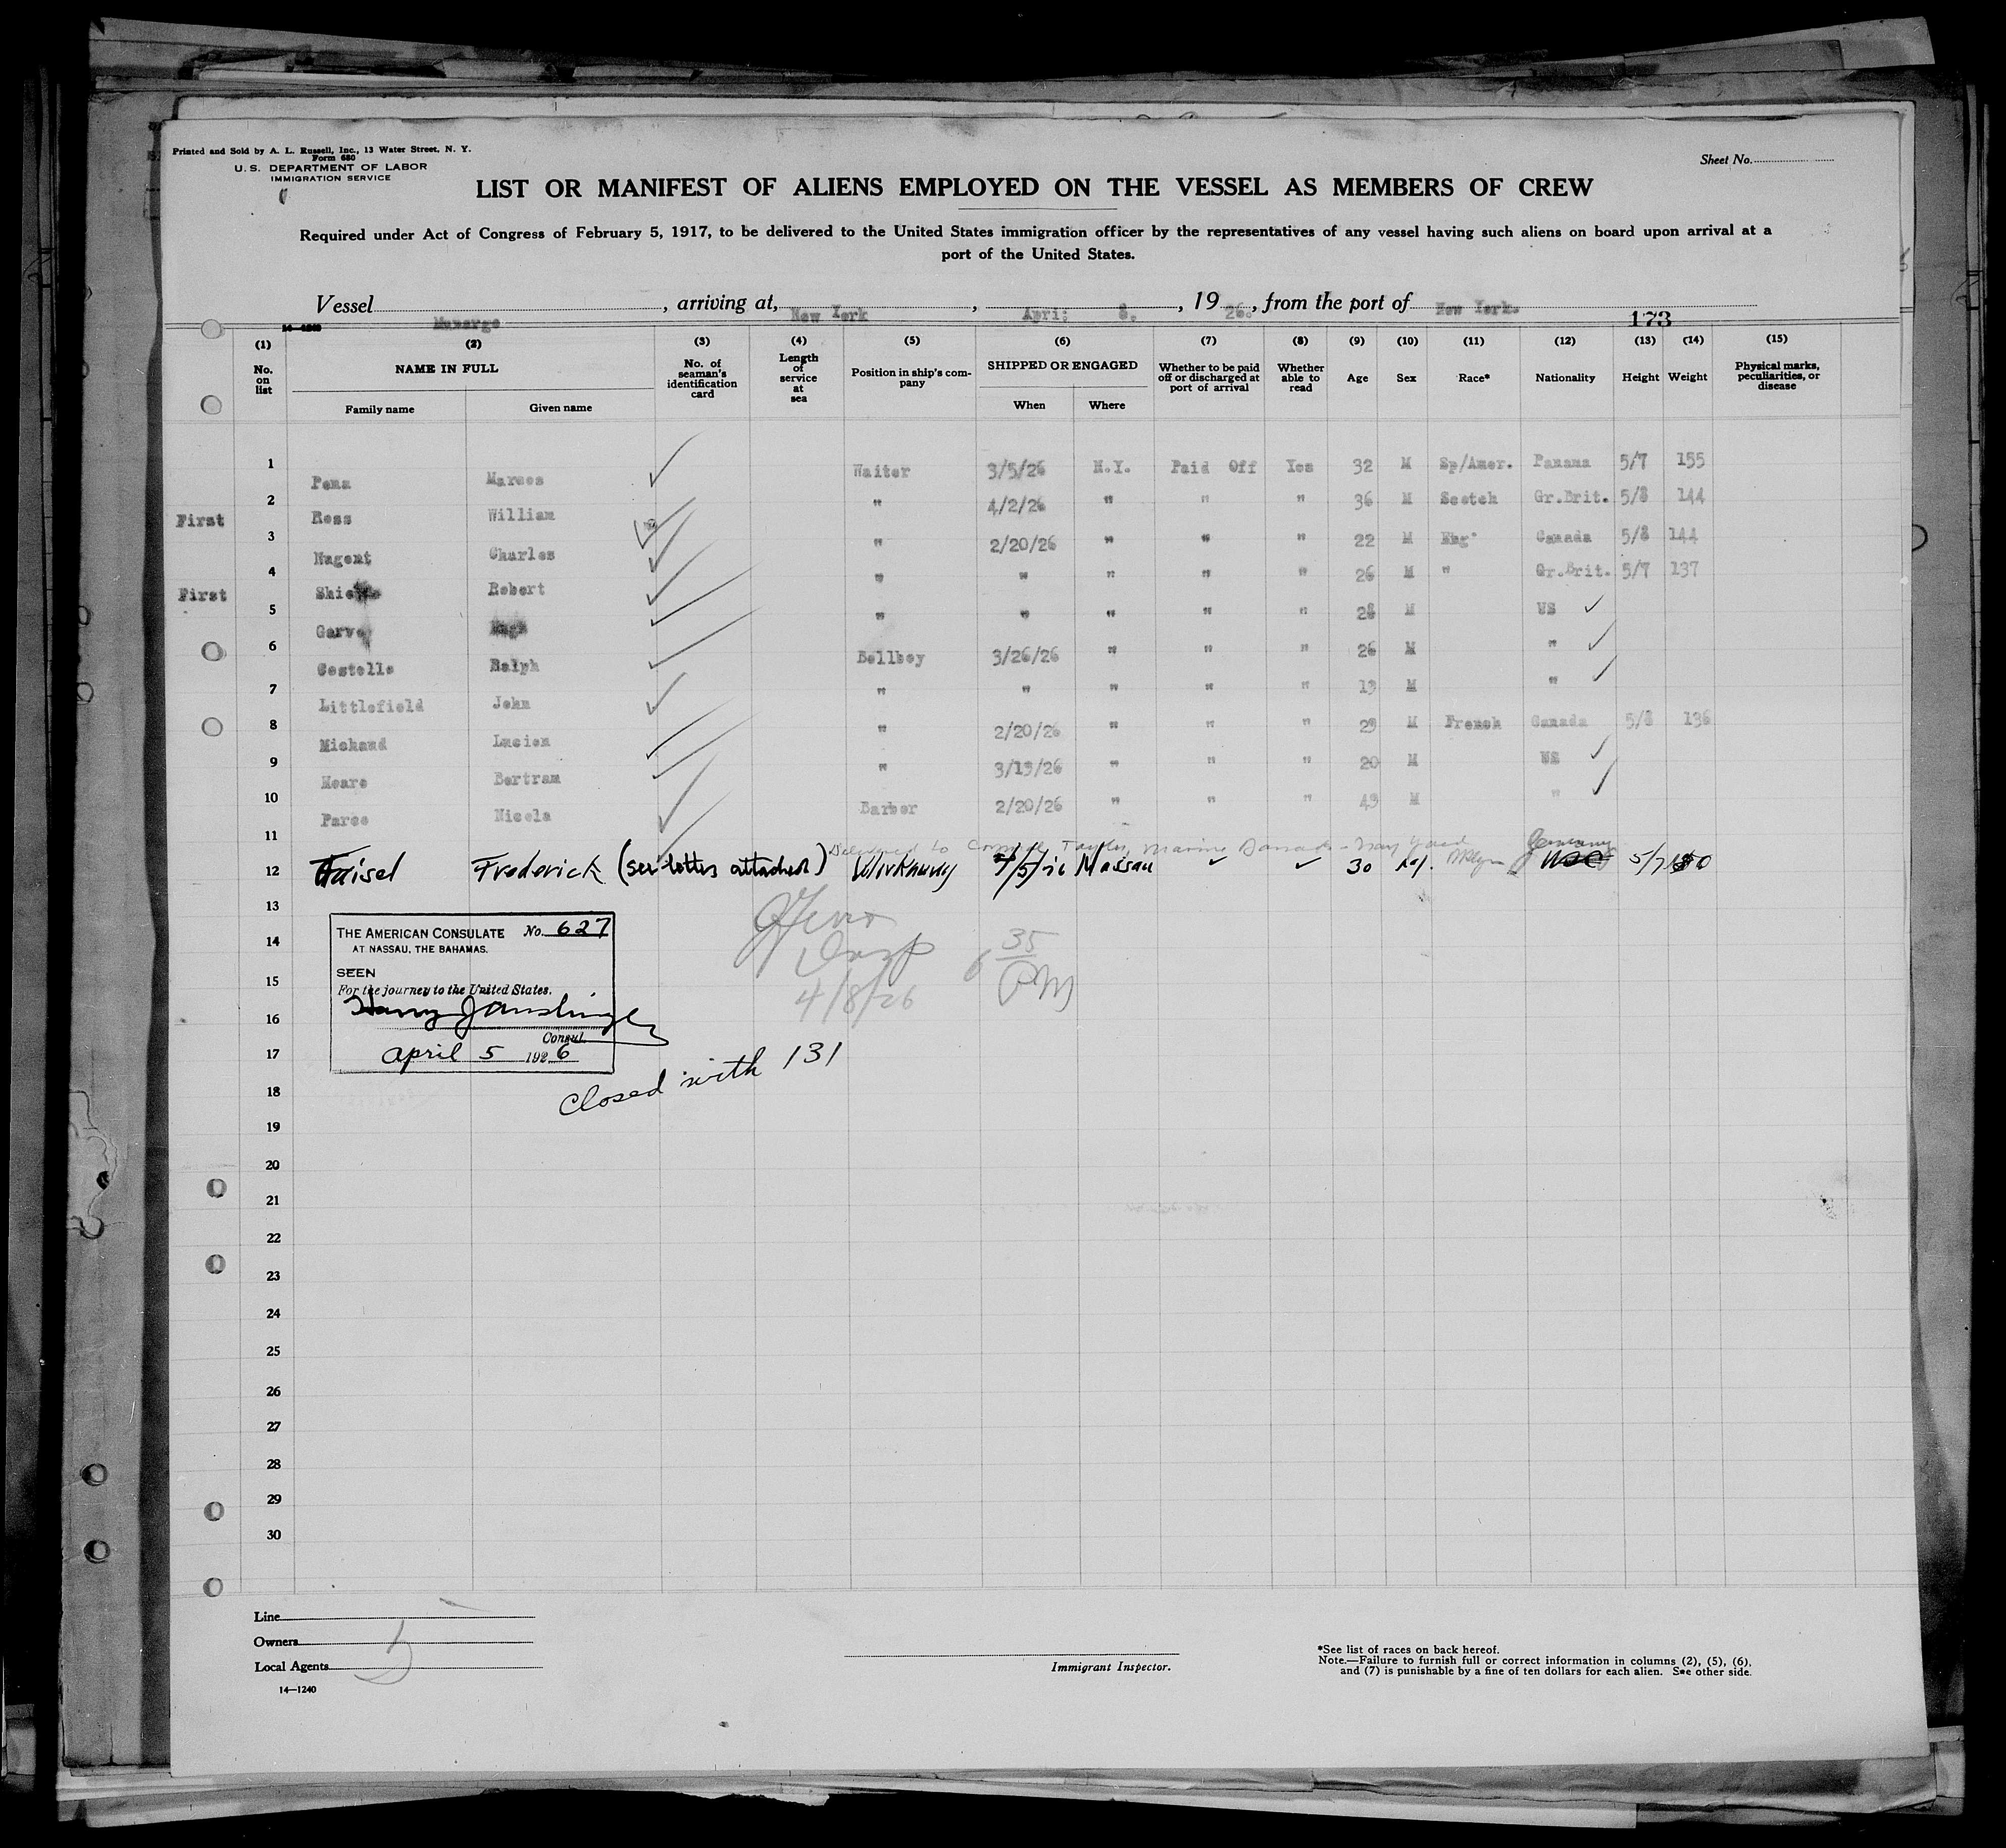 Printed and Sold by A. L. Russell, Inc., 13 Water Street, N. Y.
Form 680
U. S. DEPARTMENT OF LABOR
IMMIGRATION SERVICE
Sheet No.
LIST OR MANIFEST OF ALIENS EMPLOYED ON THE VESSEL AS MEMBERS OF CREW
Required under Act of Congress of February 5, 1917, to be delivered to the United States immigration officer by the representatives of any vessel having such aliens on board upon arrival at a
port of the United States.
Vessel Munargo, arriving at, New York, April 8., 1926., from the port of New York.
14-1240
173
(1) (2) (3) (4) (5) (6) (7) (8) (9) (10) (11) (12) (13) (14) (15)
No. on list NAME IN FULL Family name Given name No. of seaman's identification card Length of service at sea Position in ship's company SHIPPED OR ENGAGED When Where Whether to be paid off or discharged at port of arrival Whether able to read Age Sex Race* Nationality Height Weight Physical marks, peculiarities, or disease
1 Pena Marcos Waiter 3/5/26 N.Y. Paid Off Yes 32 M Sp/Amer. Panama 5/7 155
First 2 Ross William " 4/2/26 " " " 36 M Scotch Gr.Brit. 5/8 144
3 Nugent Charles " 2/20/26 " " " 22 M Eng. Canada 5/8 144
First 4 Robert " " " " " 26 M " Gr.Brit. 5/7 137
5 Garvey Hugh " " " " " 28 M US ✓
6 Costello Ralph Bellboy 3/26/26 " " " 26 M " ✓
7 Littlefield John " " " " " 19 M " ✓
8 Michaud Lucien " 2/20/26 " " " 29 M French Canada 5/8 136
9 Hoare Bertram " 3/13/26 " " " 20 M US ✓
10 Parce Nicola Barber 2/20/26 " " " 49 M " ✓
11 Delivered to Corporal Taylor, Marine Barracks - Navy Yard Germany
12 Frederick (see letter attached) Workaway 4/5/26 Nassau ✓ ✓ 30 M. 5/7
13
THE AMERICAN CONSULATE No. 627
AT NASSAU, THE BAHAMAS.
SEEN
For the journey to the United States.
Consul.
April 5 1926
14
6 35 PM
15
4/8/26
16
17
closed with 131
18
19
20
21
22
23
24
25
26
27
28
29
30
Line
Owners
Local Agents
14—1240
Immigrant Inspector.
*See list of races on back hereof.
Note.—Failure to furnish full or correct information in columns (2), (5), (6),
and (7) is punishable by a fine of ten dollars for each alien. See other side.